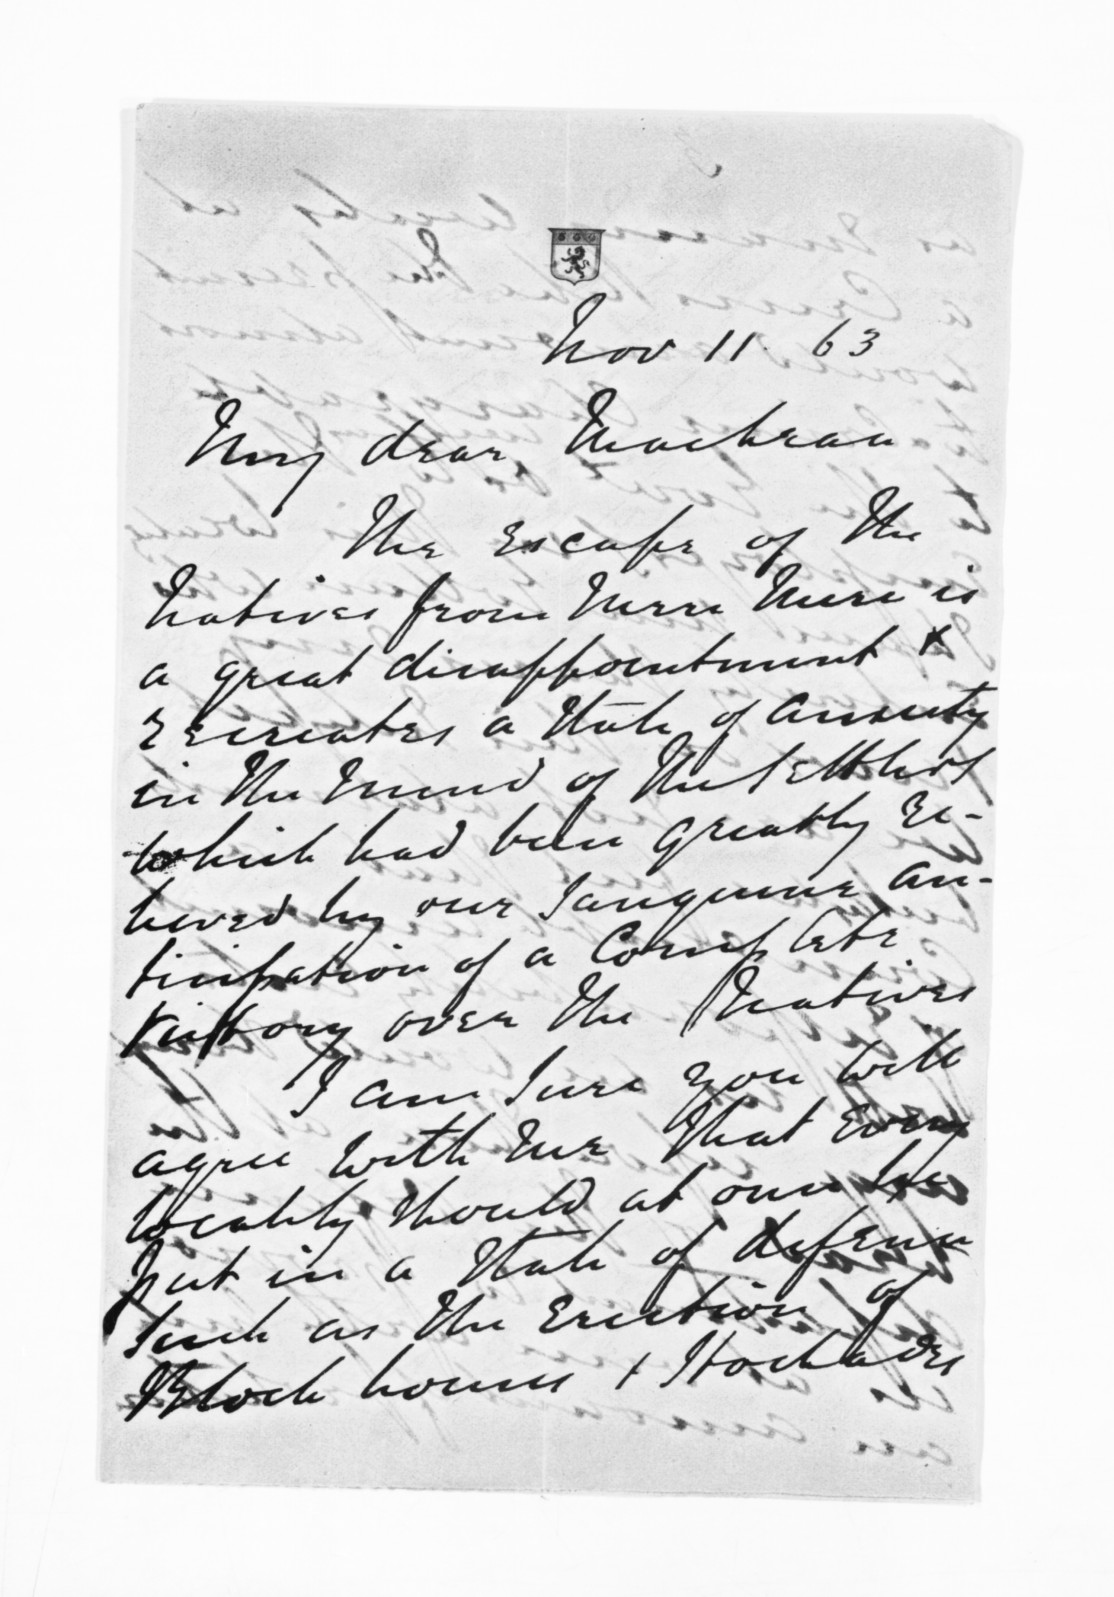 Nov 11. 63
My dear Maclean
The Escape of the
Natives from Mere Mere is
a great disappointment &
recreates a state of anxiety
in the mind of the Settlers
which had been greatly re-
lieved by our sanguine an-
ticipation of a Complete
Victory over the Natives
I am sure you will
agree with me that Every
locality should at once be
put in a state of defence
such as the Erection of
Block houses & Stockades